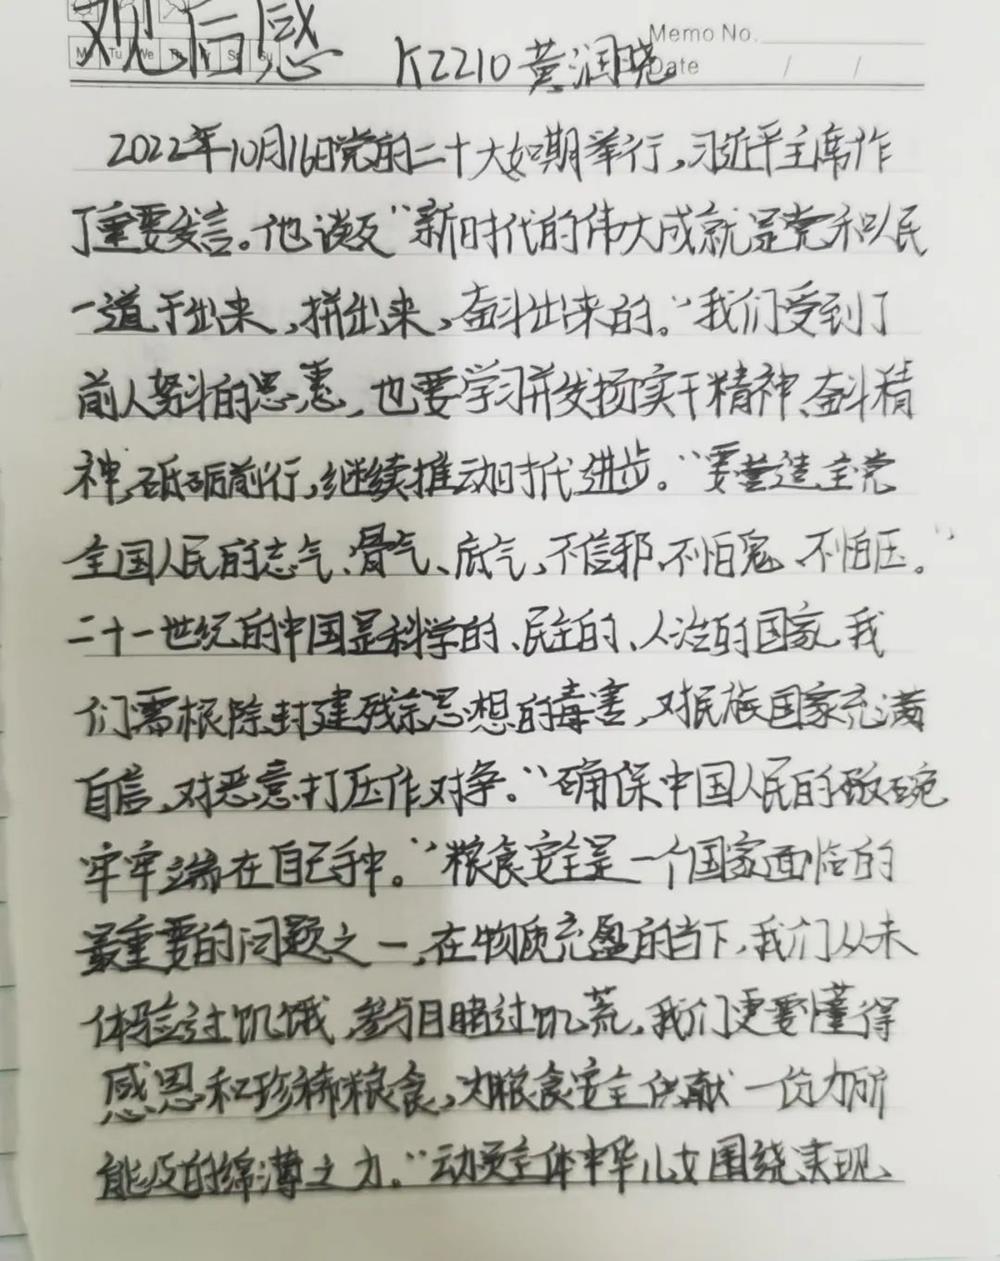 观后感
K2210黄润晓
Memo No.
Date / /
Mo Tu We Th Fr Sa Su
2022年10月16日党的二十大如期举行，习近平主席作
了重要发言。他谈及“新时代的伟大成就是党和人民
一道干出来，拼出来，奋斗出来的。”我们受到了
前人努斗的恩惠，也要学习并发扬实干精神、奋斗精
神，砥砺前行，继续推动时代进步。“要营造全党
全国人民的志气、骨气、底气，不信邪、不怕鬼、不怕压。”
二十一世纪的中国是科学的、民主的、人治的国家，我
们需根除封建残余思想的毒害，对民族国家充满
自信，对恶意打压作对争。“确保中国人民的饭碗
牢牢端在自己手中。”粮食安全是一个国家面临的
最重要的问题之一，在物质充盈的当下，我们从未
体验过饥饿，参与目睹过饥荒，我们更要懂得
感恩和珍稀粮食，为粮食安全供献一份力所
能及的绵薄之力。“动员全体中华儿女围绕实现